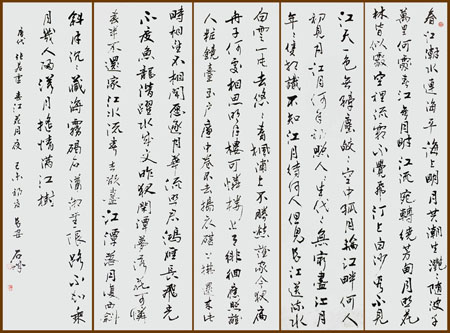 春江潮水連海平海上明月共潮生灩灩隨波千
萬里何處春江無月明江流宛轉繞芳甸月照花
林皆似霰空裡流霜不覺飛汀上白沙看不見
江天一色無纖塵皎皎空中孤月輪江畔何人
初見月江月何年初照人人生代代無窮盡江月
年年相似不知江月待何人但見長江送流水
白雲一片去悠悠青楓浦上不勝愁誰家今夜扁
舟子何處相思明月樓可憐樓上月徘徊應照離
人粧鏡臺玉戶簾中卷不去搗衣砧上拂還來此
時相望不相聞願逐月華流照君鴻雁長飛光
不度魚龍潛躍水成文昨夜閑潭夢落花可憐
春半不還家江水流春去欲盡江潭落月復西斜
斜月沉沉藏海霧碣石瀟湘無限路不知乘
月幾人歸落月搖情滿江樹
唐代張若虛春江花月夜